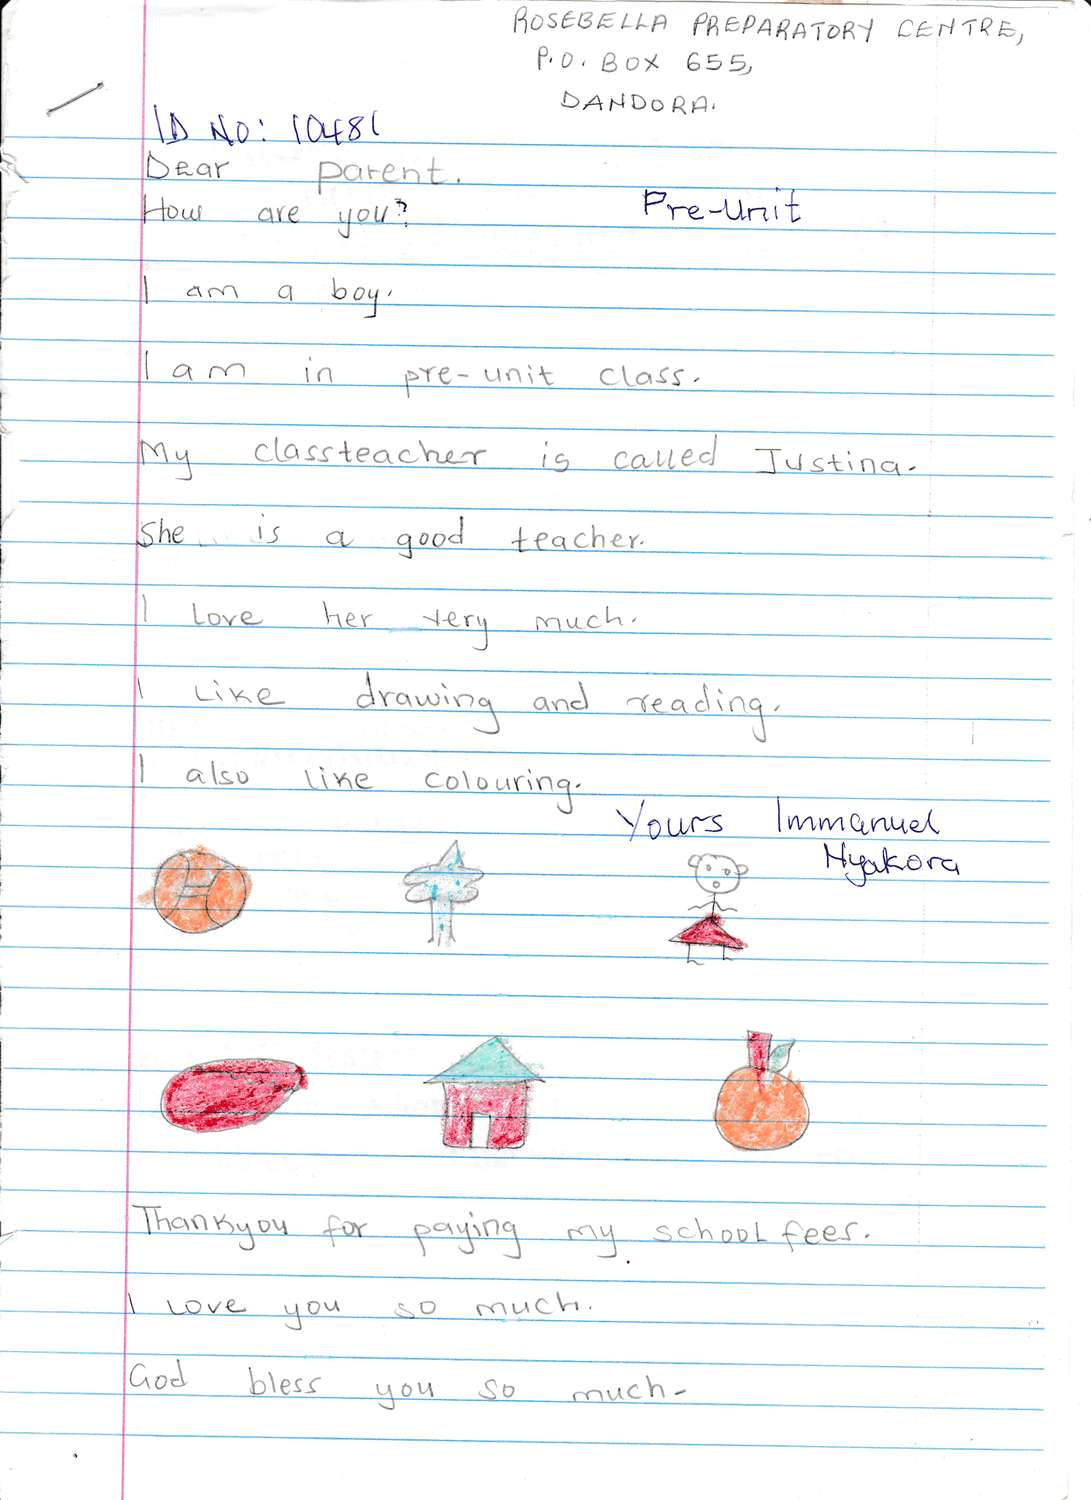 ROSEBELLA PREPARATORY CENTRE,
P.O. BOX 655,
DANDORA.
ID NO: 10481
Dear parent.
How are you?
Pre-Unit
I am a boy.
I am in pre-unit class.
My classteacher is called Justina.
She is a good teacher.
I Love her very much.
I Like drawing and reading.
I also like colouring.
Yours Immanuel
Nyakora
Thankyou for paying my school fees.
I Love you so much.
God bless you so much-